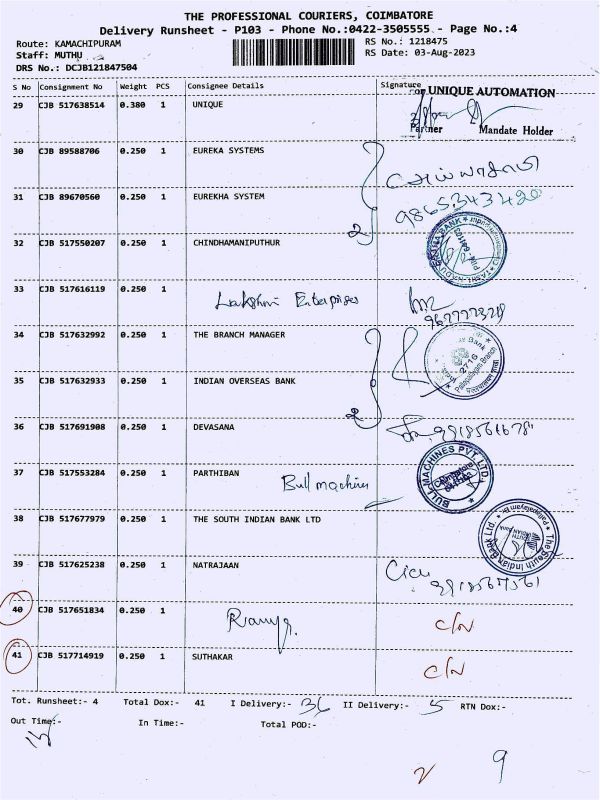 THE PROFESSIONAL COURIERS, COIMBATORE
Delivery Runsheet - P103 - Phone No.:0422-3505555 - Page No.:4
Route: KAMACHIPURAM
RS No.: 1218475
Staff: MUTHU
RS Date: 03-Aug-2023
DRS No.: DCJB121847504
S No Consignment No Weight PCS Consignee Details Signature
29 CJB 517638514 0.380 1 UNIQUE
For UNIQUE AUTOMATION
Partner Mandate Holder
30 CJB 89588706 0.250 1 EUREKA SYSTEMS
31 CJB 89670560 0.250 1 EUREKHA SYSTEM
2
9865343420
32 CJB 517550207 0.250 1 CHINDHAMANIPUTHUR
33 CJB 517616119 0.250 1 Lakshmi Enterprises
34 CJB 517632992 0.250 1 THE BRANCH MANAGER
2716
35 CJB 517632933 0.250 1 INDIAN OVERSEAS BANK
2
36 CJB 517691908 0.250 1 DEVASANA
37 CJB 517553284 0.250 1 PARTHIBAN Bull machines
BULL MACHINES PVT LTD
Coimbatore
38 CJB 517677979 0.250 1 THE SOUTH INDIAN BANK LTD
The South Indian Bank Ltd.
39 CJB 517625238 0.250 1 NATRAJAAN
40 CJB 517651834 0.250 1 C/N
41 CJB 517714919 0.250 1 SUTHAKAR C/N
Tot. Runsheet:- 4 Total Dox:- 41 I Delivery:- 36 II Delivery:- 5 RTN Dox:-
Out Time:- In Time:- Total POD:-
2 9